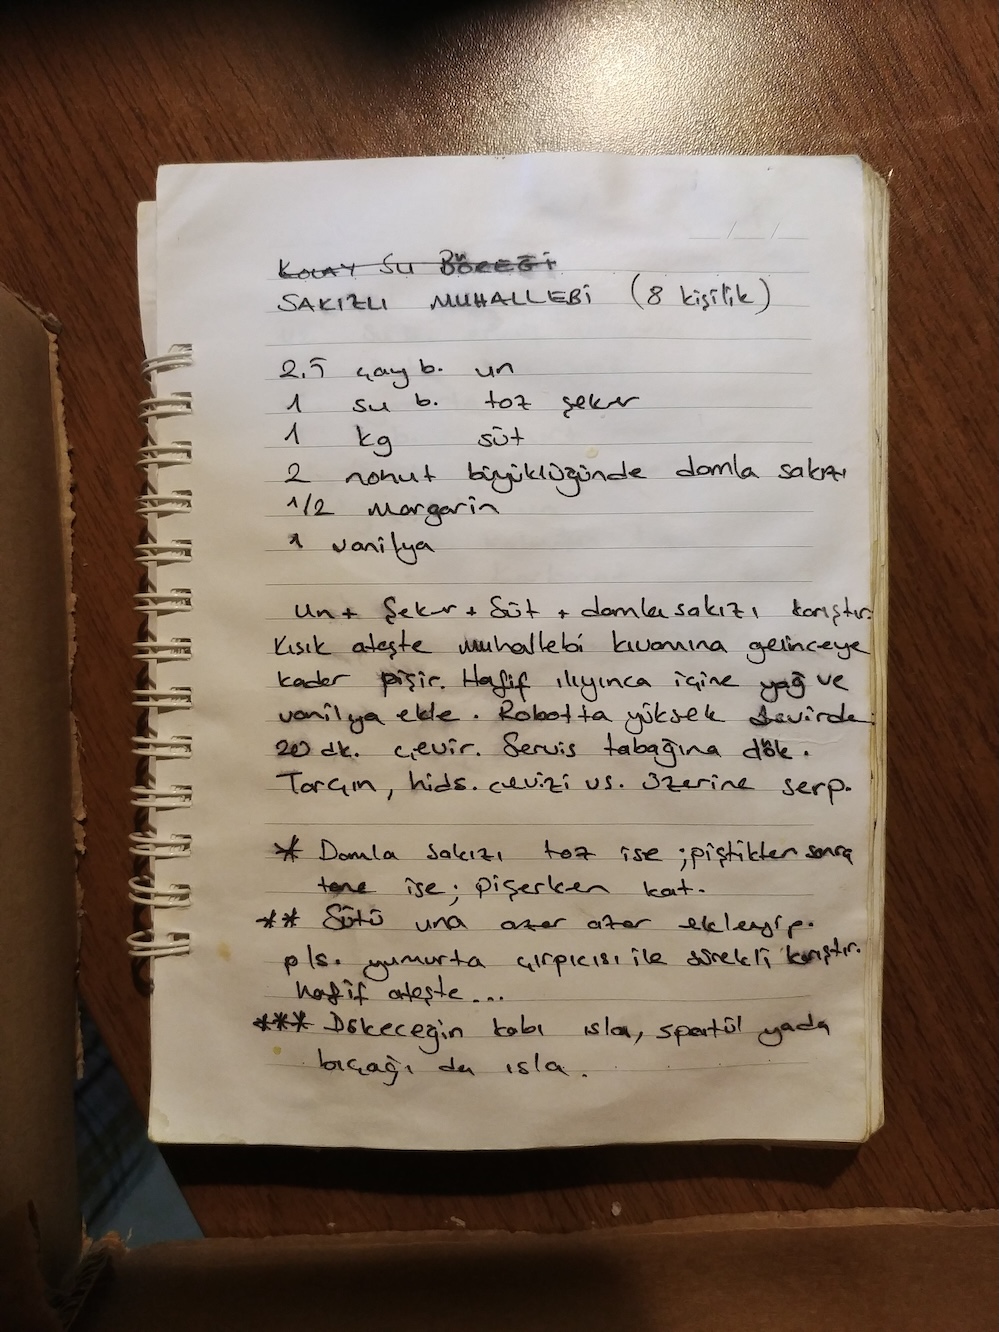 KOLAY SU BÖREĞİ
SAKIZLI MUHALLEBİ (8 kişilik)
2.5 çay b. un
1 su b. toz şeker
1 kg süt
2 nohut büyüklüğünde damla sakızı
1/2 Margarin
1 vanilya
Un + Şeker + Süt + damla sakızı karıştır.
Kısık ateşte muhallebi kıvamına gelinceye
kadar pişir. Hafif ılıyınca içine yağ ve
vanilya ekle. Robotta yüksek devirde
20 dk. çevir. Servis tabağına dök.
Tarçın, hids. cevizi vs. üzerine serp.
* Damla sakızı toz ise ; piştikten sonra
tane ise ; pişerken kat.
** Sütü una azar azar ekleyip.
pls. yumurta çırpıcısı ile sürekli karıştır.
hafif ateşte...
*** Dökeceğin kabı ısla, spatül yada
bıçağı da ısla.